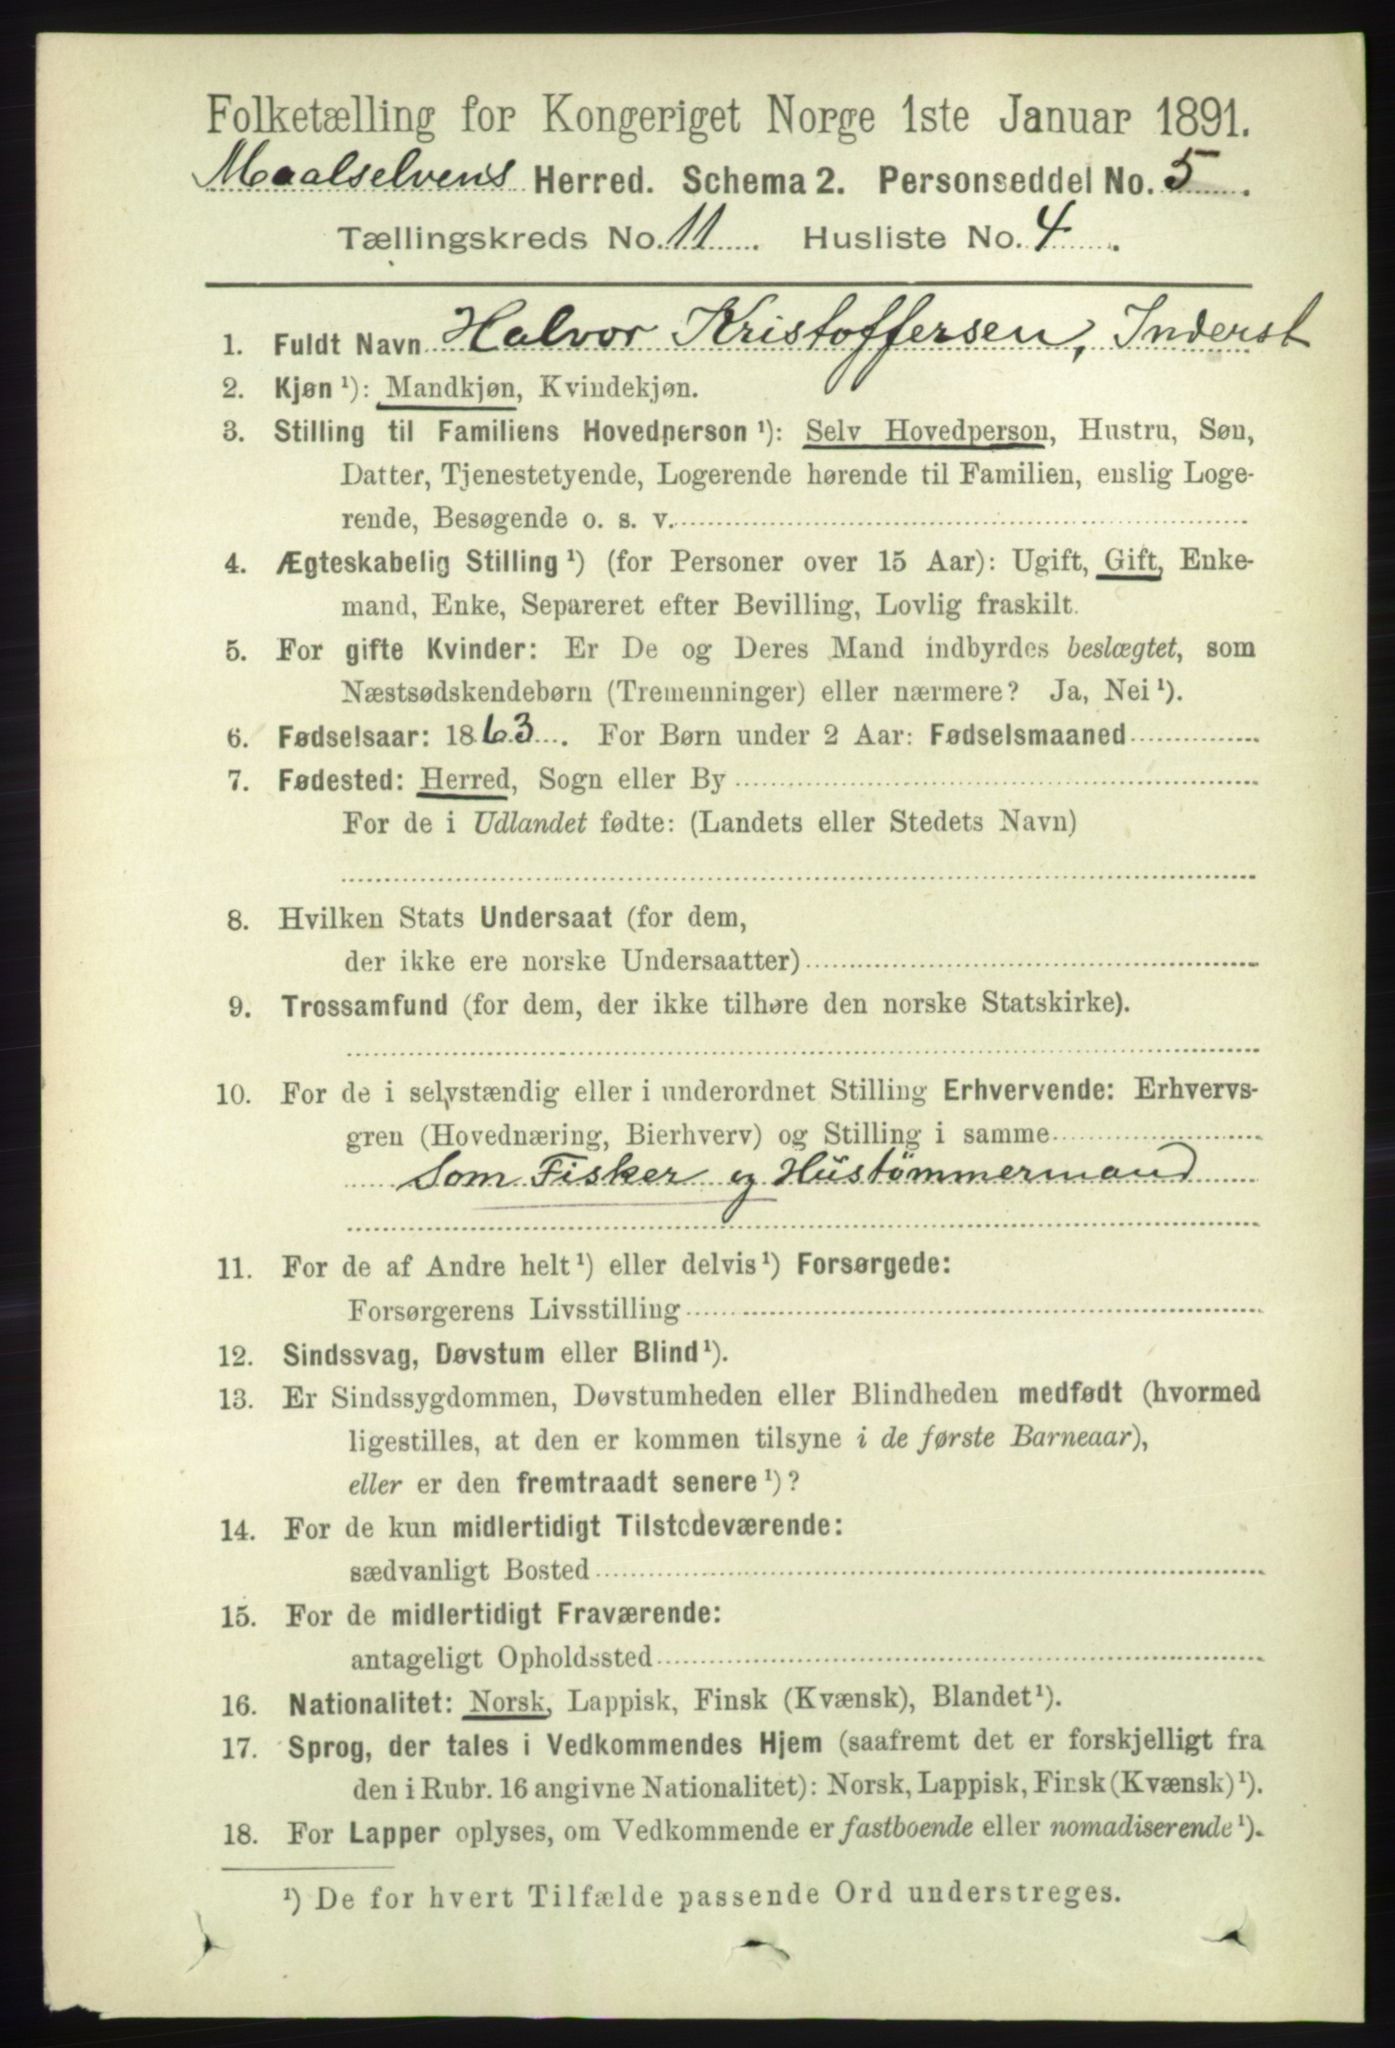 Folketælling for Kongeriget Norge 1ste Januar 1891.
Maalselvens Herred. Schema 2. Personseddel No. 5.
Tællingskreds No. 11. Husliste No. 4.
1. Fuldt Navn Halvor Kristoffersen, Inderst
2. Kjøn ¹): Mandkjøn, Kvindekjøn.
3. Stilling til Familiens Hovedperson ¹): Selv Hovedperson, Hustru, Søn,
Datter, Tjenestetyende, Logerende hørende til Familien, enslig Loge-
rende, Besøgende o. s. v.
4. Ægteskabelig Stilling ¹) (for Personer over 15 Aar): Ugift, Gift, Enke-
mand, Enke, Separeret efter Bevilling, Lovlig fraskilt.
5. For gifte Kvinder: Er De og Deres Mand indbyrdes beslægtet, som
Næstsødskendebørn (Tremenninger) eller nærmere? Ja, Nei ¹).
6. Fødselsaar: 1863. For Børn under 2 Aar: Fødselsmaaned
7. Fødested: Herred, Sogn eller By
For de i Udlandet fødte: (Landets eller Stedets Navn)
8. Hvilken Stats Undersaat (for dem,
der ikke ere norske Undersaatter)
9. Trossamfund (for dem, der ikke tilhøre den norske Statskirke).
10. For de i selvstændig eller i underordnet Stilling Erhvervende: Erhvervs-
gren (Hovednæring, Bierhverv) og Stilling i samme
Som Fisker og Hüstömmermand
11. For de af Andre helt ¹) eller delvis ¹) Forsørgede:
Forsørgerens Livsstilling
12. Sindssvag, Døvstum eller Blind ¹).
13. Er Sindssygdommen, Døvstumheden eller Blindheden medfødt (hvormed
ligestilles, at den er kommen tilsyne i de første Barneaar),
eller er den fremtraadt senere ¹)?
14. For de kun midlertidigt Tilstedeværende:
sædvanligt Bosted
15. For de midlertidigt Fraværende:
antageligt Opholdssted
16. Nationalitet: Norsk, Lappisk, Finsk (Kvænsk), Blandet ¹).
17. Sprog, der tales i Vedkommendes Hjem (saafremt det er forskjelligt fra
den i Rubr. 16 angivne Nationalitet): Norsk, Lappisk, Finsk (Kvænsk) ¹).
18. For Lapper oplyses, om Vedkommende er fastboende eller nomadiserende ¹).
¹) De for hvert Tilfælde passende Ord understreges.